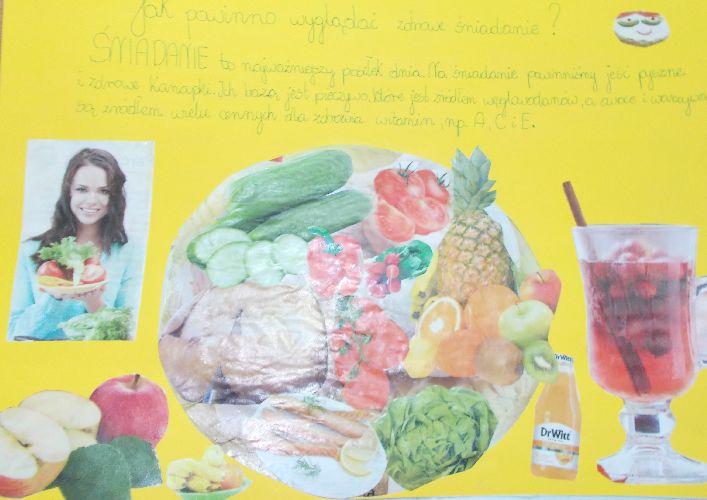 Jak powinno wyglądać zdrowe śniadanie?
ŚNIADANIE to najważniejszy posiłek dnia. Na śniadanie powinniśmy jeść pyszne
i zdrowe kanapki. Ich bazą jest pieczywo, które jest źródłem węglowodanów, a owoce i warzywa
są źródłem wielu cennych dla zdrowia witamin, np. A, C i E.
DrWitt
DrWitt